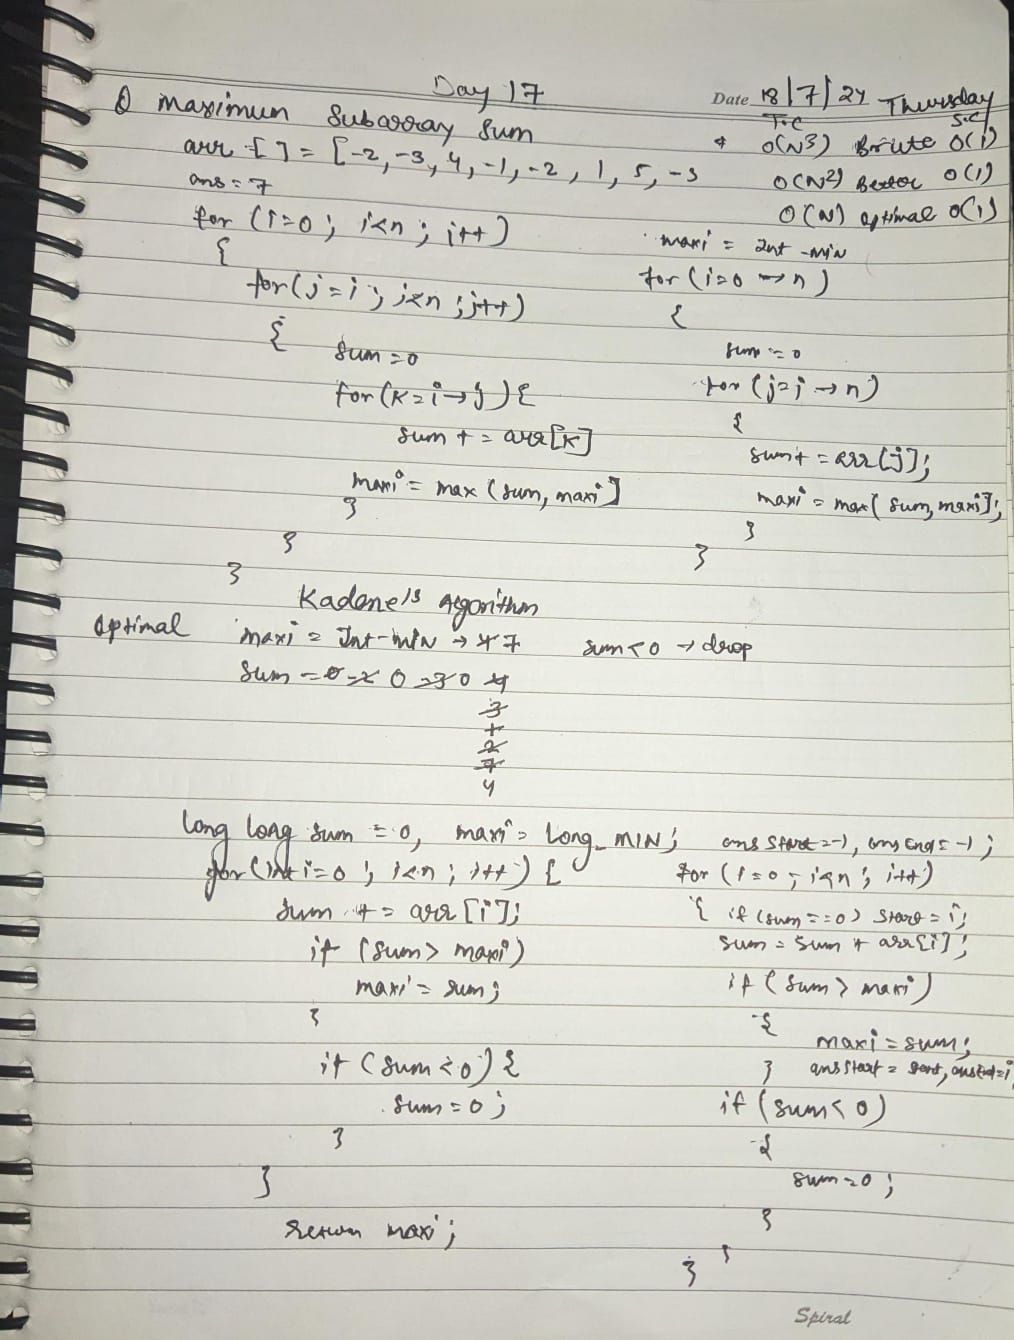 Day 17
Date 18/7/24 Thursday
Q maximum Subarray Sum
arr [] = [-2, -3, 4, -1, -2, 1, 5, -3
ans = 7
T.C S.C
* O(N3) Brute O(1)
O(N2) Better O(1)
O(N) optimal O(1)
for (i=0; i<n; i++)
{
for (j=i; j<n; j++)
{
sum = 0
for (K=i→j) {
sum += arr[K]
maxi = max (sum, maxi]
}
}
}
maxi = Int-min
for (i=0 → n)
{
sum = 0
for (j=i → n)
{
sum += arr[j];
maxi = max( sum, maxi];
}
}
Kadane's Algorithm
Optimal
maxi = Int-MIN → 4 7
sum<0 → drop
Sum = 0 -2 0 -3 0 4
3
1
2
7
4
long long sum = 0, maxi = Long_MIN;
for (int i=0; i<n; i++) {
sum += arr[i];
if (sum> maxi)
maxi = sum;
}
if (sum<0) {
sum = 0;
}
}
return maxi;
ans Start = -1, ans End = -1;
for (i=0; i<n; i++)
{ if (sum==0) start = i;
sum = sum + arr[i];
if (sum > maxi)
{
maxi = sum;
} ansStart = start, ansEnd=i
if (sum<0)
{
sum=0;
}
}
Spiral